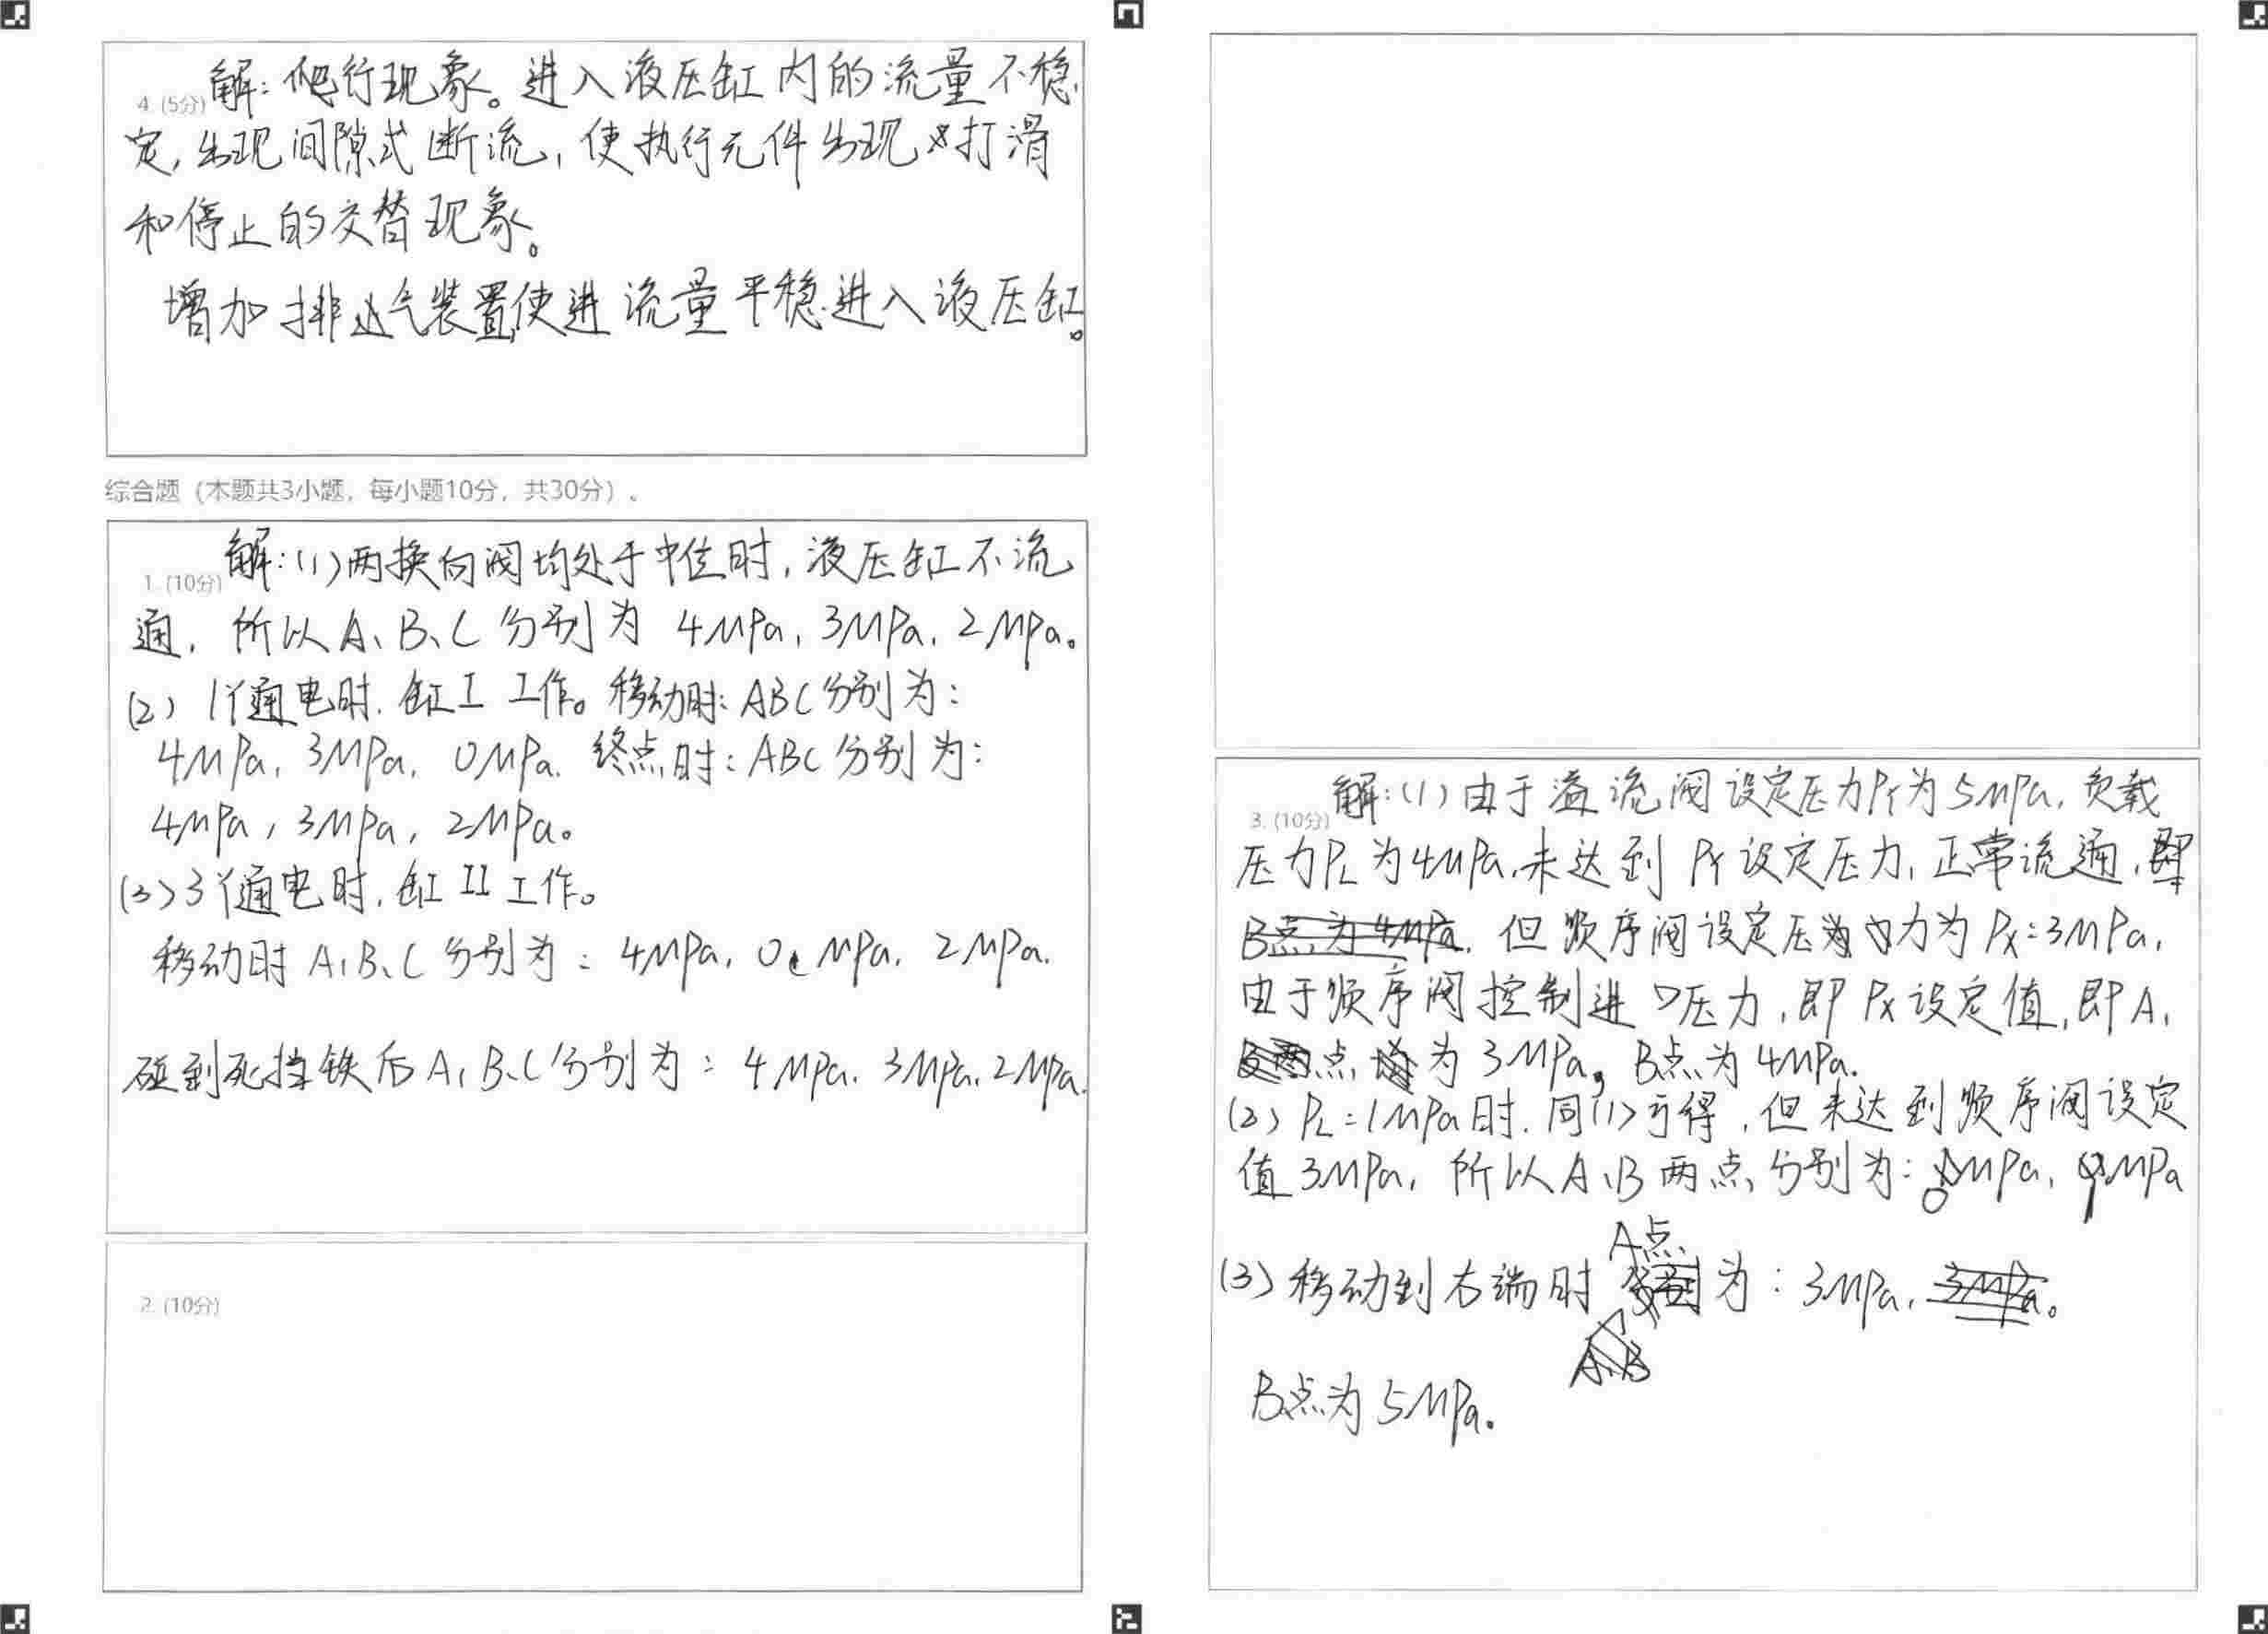 4. (5分) 解：爬行现象。进入液压缸内的流量不稳
定，出现间隙式断流，使执行元件出现打滑
和停止的交替现象。
增加排气装置使进流量平稳进入液压缸。
综合题（本题共3小题，每小题10分，共30分）。
1. (10分) 解：(1)两换向阀均处于中位时，液压缸不流
通，所以A、B、C分别为 4MPa，3MPa，2MPa。
(2) 1Y通电时，缸I 工作。移动时：ABC分别为：
4MPa，3MPa，0MPa. 终点时：ABC分别为：
4MPa，3MPa，2MPa。
(3)3Y通电时，缸II工作。
移动时A、B、C分别为：4MPa，0MPa，2MPa.
碰到死挡铁后A、B、C分别为：4MPa. 3MPa. 2MPa.
2. (10分)
3. (10分) 解：(1)由于溢流阀设定压力PY为5MPa，负载
压力PL为4MPa，未达到PY设定压力，正常流通，即
B点为4MPa. 但顺序阀设定压力为PX=3MPa，
由于顺序阀控制进口压力，即PX设定值，即A、
点为3MPa，B点为4MPa.
(2) PL=1MPa时，同(1)可得，但未达到顺序阀设定
值3MPa，所以A、B两点分别为：0MPa，MPa
A点
(3) 移动到右端时为：3MPa，3MPa。
A、B
B点为5MPa。